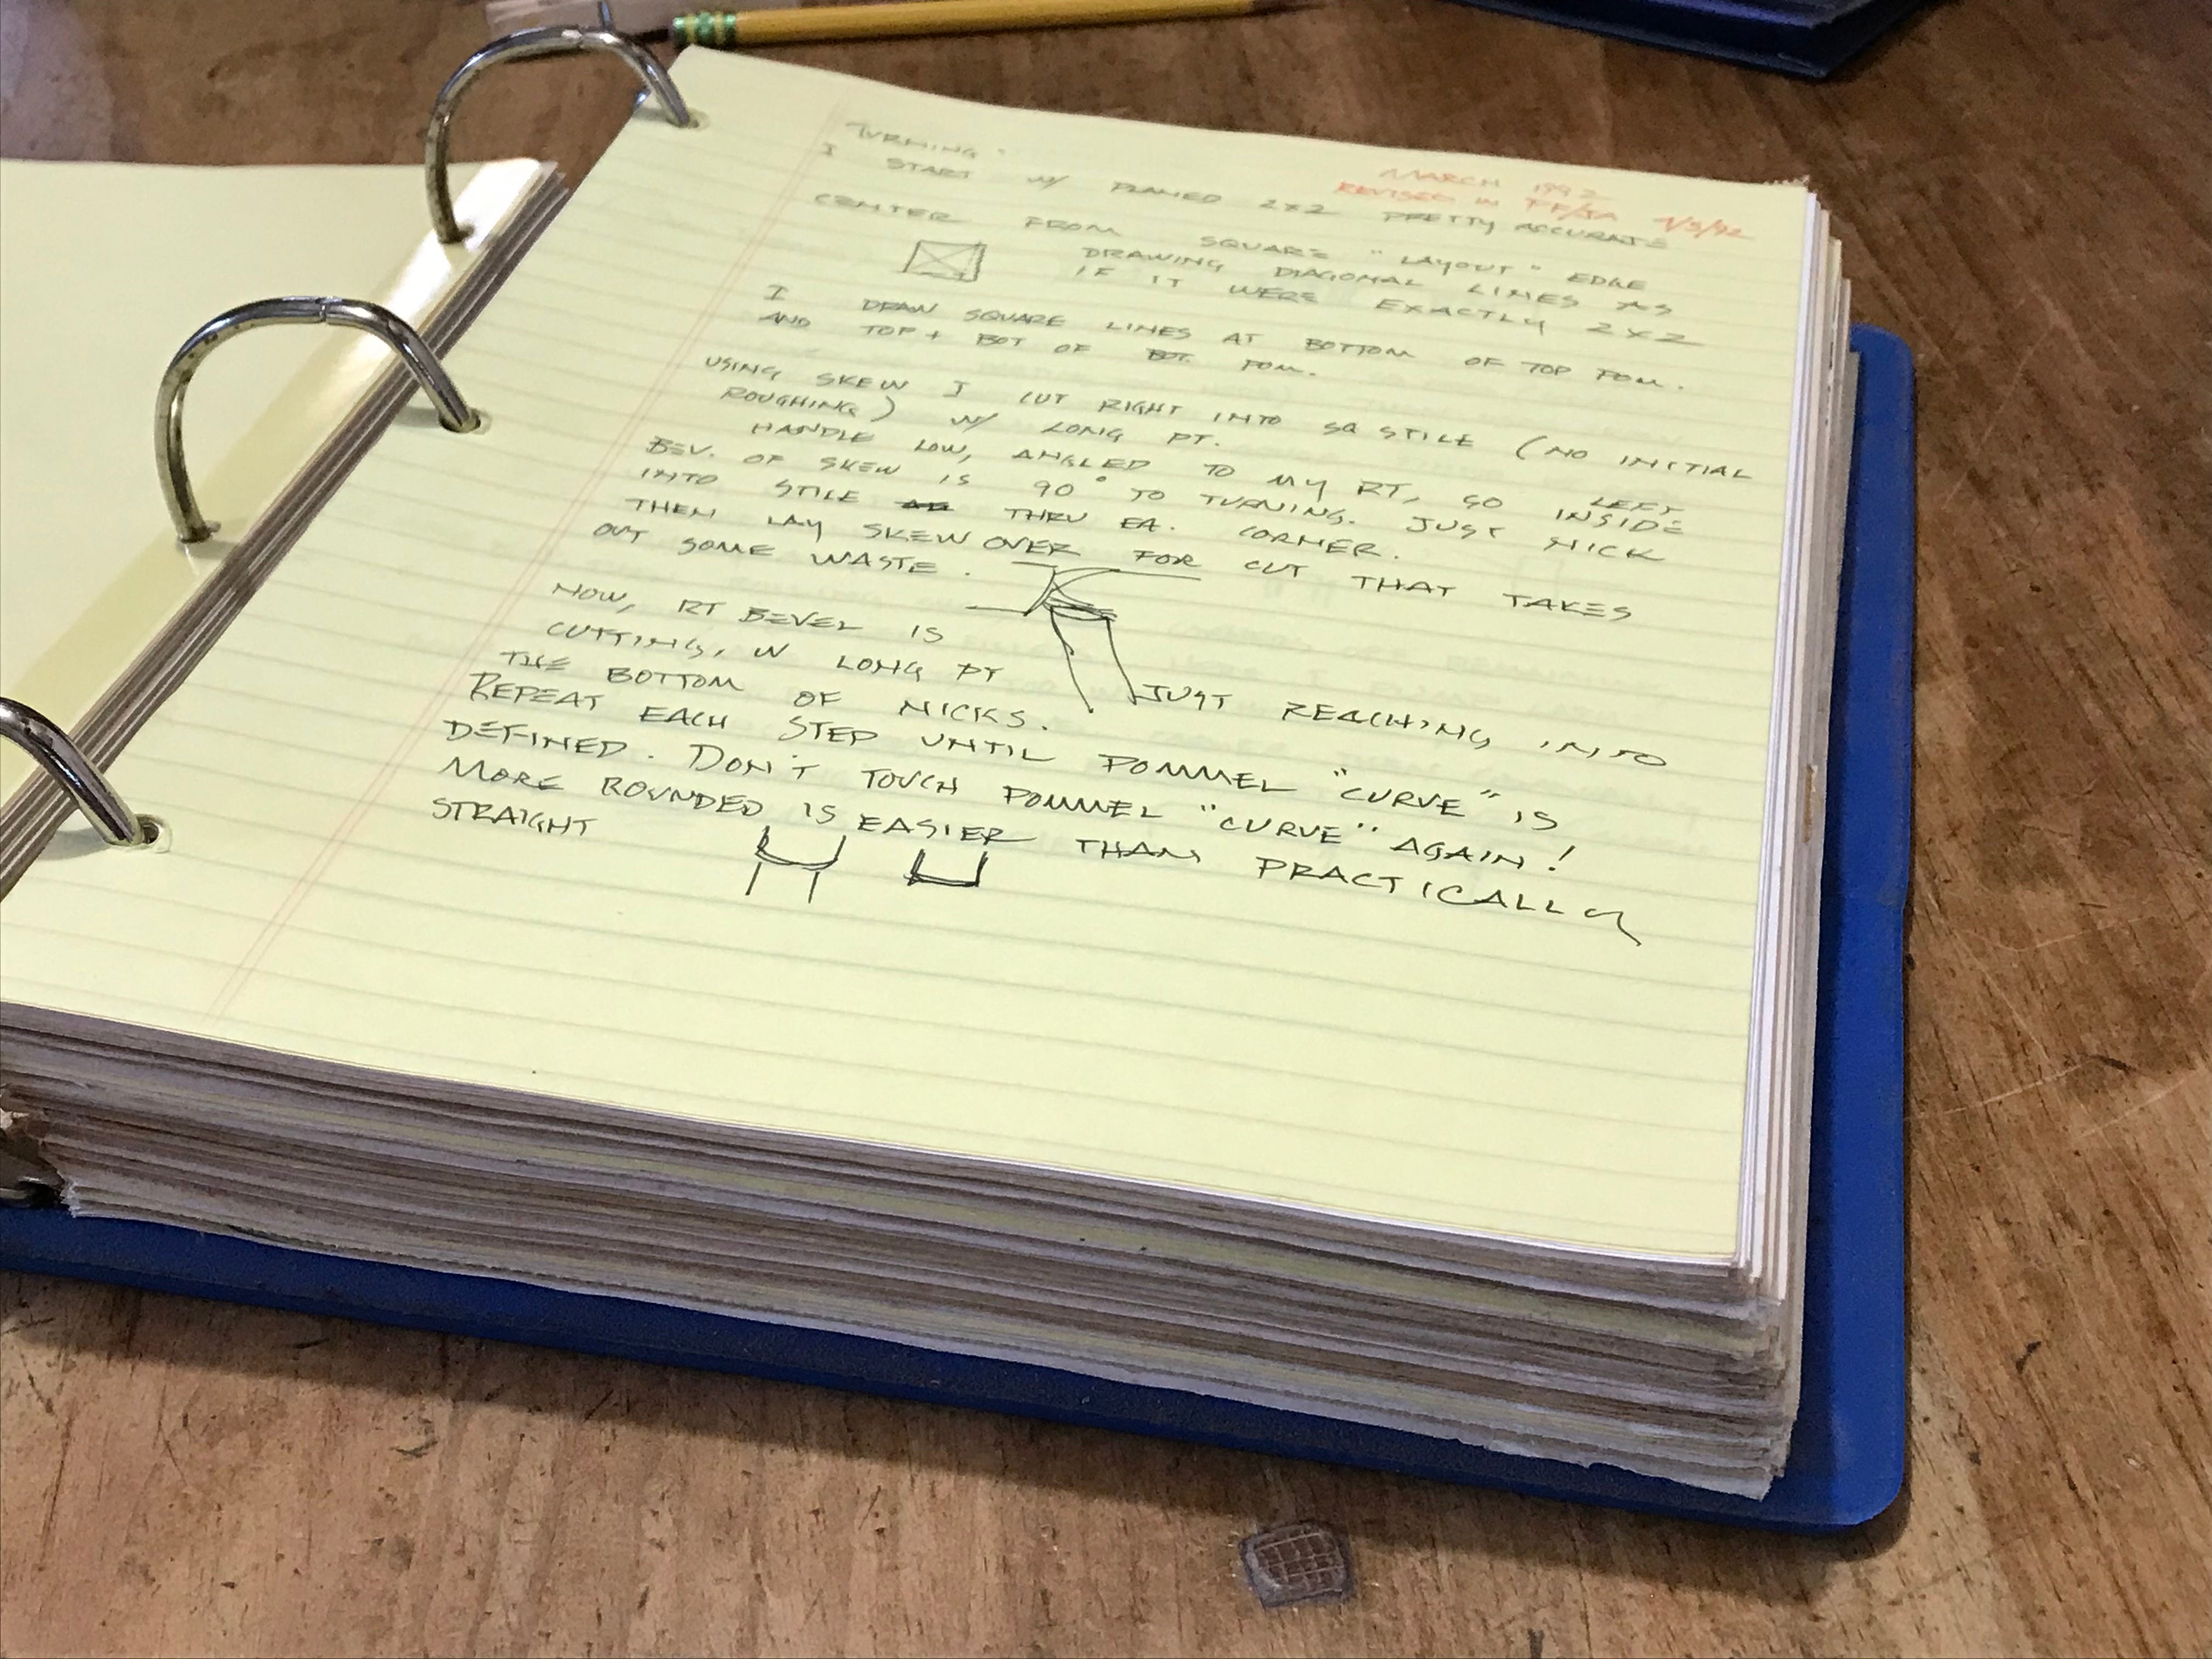 TURNING -
MARCH 1992
REVISED IN FF/SA 9/3/92
I START W/ PLANED 2X2 PRETTY ACCURATE
CENTER FROM SQUARE "LAYOUT" EDGE
DRAWING DIAGONAL LINES AS
IF IT WERE EXACTLY 2X2
I DRAW SQUARE LINES AT BOTTOM OF TOP POM.
AND TOP + BOT OF BOT. POM.
USING SKEW I CUT RIGHT INTO SQ STILE (NO INITIAL
ROUGHING) W/ LONG PT.
HANDLE LOW, ANGLED TO MY RT, SO LEFT
BEV. OF SKEW IS 90° TO TURNING. JUST INSIDE
INTO STILE THRU EA. CORNER. NICK
THEN LAY SKEW OVER FOR CUT THAT TAKES
OUT SOME WASTE.
NOW, RT BEVEL IS
CUTTING, W LONG PT JUST REACHING INTO
THE BOTTOM OF NICKS.
REPEAT EACH STEP UNTIL POMMEL "CURVE" IS
DEFINED. DON'T TOUCH POMMEL "CURVE" AGAIN!
MORE ROUNDED IS EASIER THAN PRACTICALLY
STRAIGHT